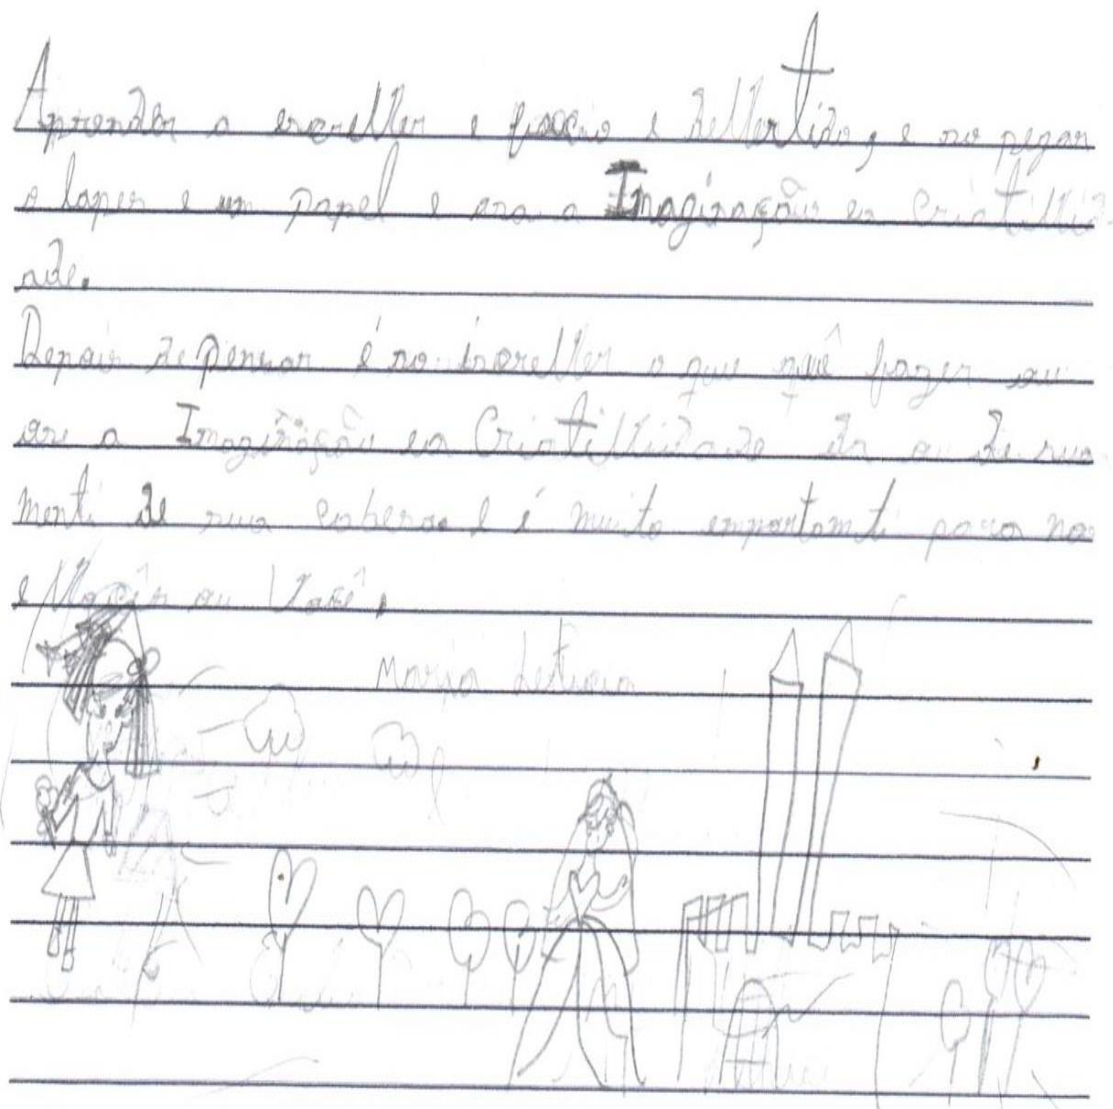 Aprender a escrever e facio e devertido, e so pegar
o laper e um papel e ara a Imaginação ea Criativid
ade.
Depois de pensar é so iscrever o que quê fazer ou
are a Imaginação ea Criatividade da ou de sua
menti de sua cabesa e é muito emportamti para nos
e Vocês ou Você.
Maria Leticia